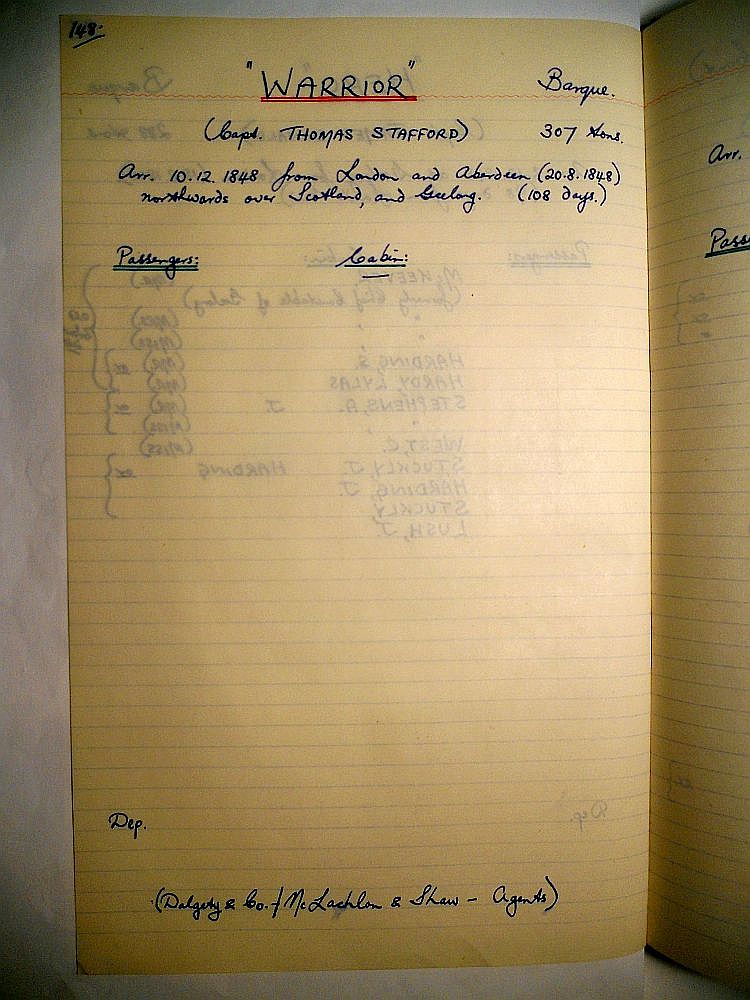 148.
"WARRIOR" Barque.
(Capt. THOMAS STAFFORD) 307 tons.
Arr. 10.12.1848 from London and Aberdeen (20.8.1848)
northwards over Scotland, and Geelong. (108 days.)
Passengers: Cabin:
Dep.
(Dalgety & Co. / McLachlan & Shaw - Agents)
Arr.
Pass